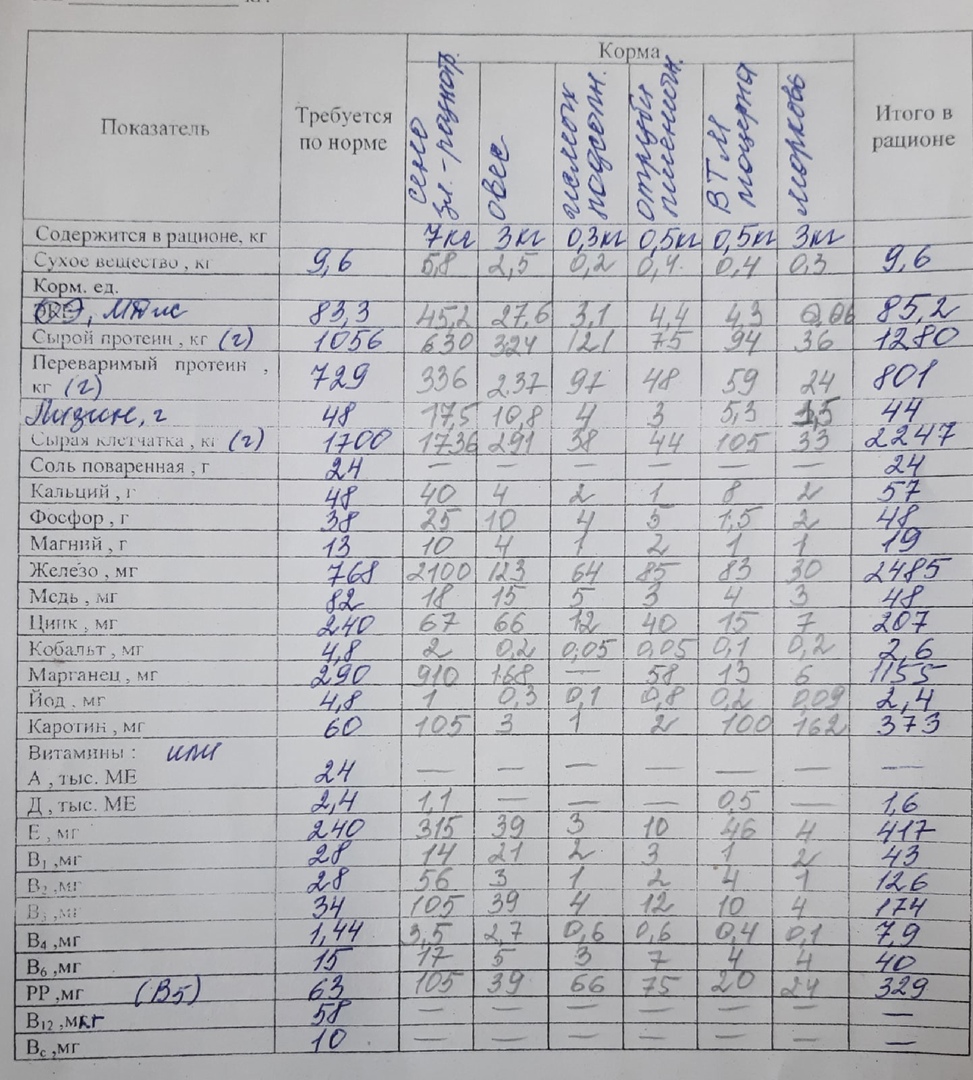 Корма
Показатель | Требуется по норме | сено зл.-разнотр. | овес | жмых подсолн. | отруби пшеничн. | ВТМ люцерна | морковь | Итого в рационе
Содержится в рационе, кг | | 7кг | 3кг | 0,3кг | 0,5кг | 0,5кг | 3кг |
Сухое вещество , кг | 9,6 | 5,8 | 2,5 | 0,2 | 0,4 | 0,4 | 0,3 | 9,6
Корм. ед.
ОЭ, МДж | 83,3 | 45,2 | 27,6 | 3,1 | 4,4 | 4,3 | 0,06 | 85,2
Сырой протеин , кг (г) | 1056 | 630 | 324 | 121 | 75 | 94 | 36 | 1280
Переваримый протеин ,
кг (г) | 729 | 336 | 237 | 97 | 48 | 59 | 24 | 801
Лизин, г | 48 | 17,5 | 10,8 | 4 | 3 | 5,3 | 1,5 | 44
Сырая клетчатка , кг (г) | 1700 | 1736 | 291 | 38 | 44 | 105 | 33 | 2247
Соль поваренная , г | 24 | — | — | — | — | — | — | 24
Кальций , г | 48 | 40 | 4 | 2 | 1 | 8 | 2 | 57
Фосфор , г | 38 | 25 | 10 | 4 | 5 | 1,5 | 2 | 48
Магний , г | 13 | 10 | 4 | 1 | 2 | 1 | 1 | 19
Железо , мг | 768 | 2100 | 123 | 64 | 85 | 83 | 30 | 2485
Медь , мг | 82 | 18 | 15 | 5 | 3 | 4 | 3 | 48
Цинк , мг | 240 | 67 | 66 | 12 | 40 | 15 | 7 | 207
Кобальт , мг | 4,8 | 2 | 0,2 | 0,05 | 0,05 | 0,1 | 0,2 | 2,6
Марганец , мг | 290 | 910 | 168 | — | 58 | 13 | 6 | 1155
Йод , мг | 4,8 | 1 | 0,3 | 0,1 | 0,8 | 0,2 | 0,09 | 2,4
Каротин , мг | 60 | 105 | 3 | 1 | 2 | 100 | 162 | 373
Витамины : или
А , тыс. МЕ | 24 | — | — | — | — | — | — | —
Д , тыс. МЕ | 2,4 | 1,1 | — | — | — | 0,5 | — | 1,6
Е , мг | 240 | 315 | 39 | 3 | 10 | 46 | 4 | 417
В1 ,мг | 28 | 14 | 21 | 2 | 3 | 1 | 2 | 43
В2 ,мг | 28 | 56 | 3 | 1 | 2 | 4 | 1 | 126
В3 ,мг | 34 | 105 | 39 | 4 | 12 | 10 | 4 | 174
В4 ,мг | 1,44 | 3,5 | 2,7 | 0,6 | 0,6 | 0,4 | 0,1 | 7,9
В6 ,мг | 15 | 17 | 5 | 3 | 7 | 4 | 4 | 40
РР ,мг (В5) | 63 | 105 | 39 | 66 | 75 | 20 | 24 | 329
В12 ,мкг | 58 | — | — | — | — | — | — | —
Вс ,мг | 10 | — | — | — | — | — | — | —